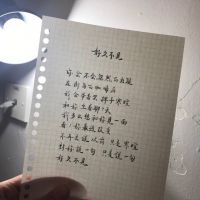 好久不见
你会不会忽然的出现
在街角的咖啡店
我会带着笑脸 挥手寒暄
和你坐着聊聊天
我多么想和你见一面
看看你最近改变
不再去说从前 只是寒暄
对你说一句 只是说一句
好久不见